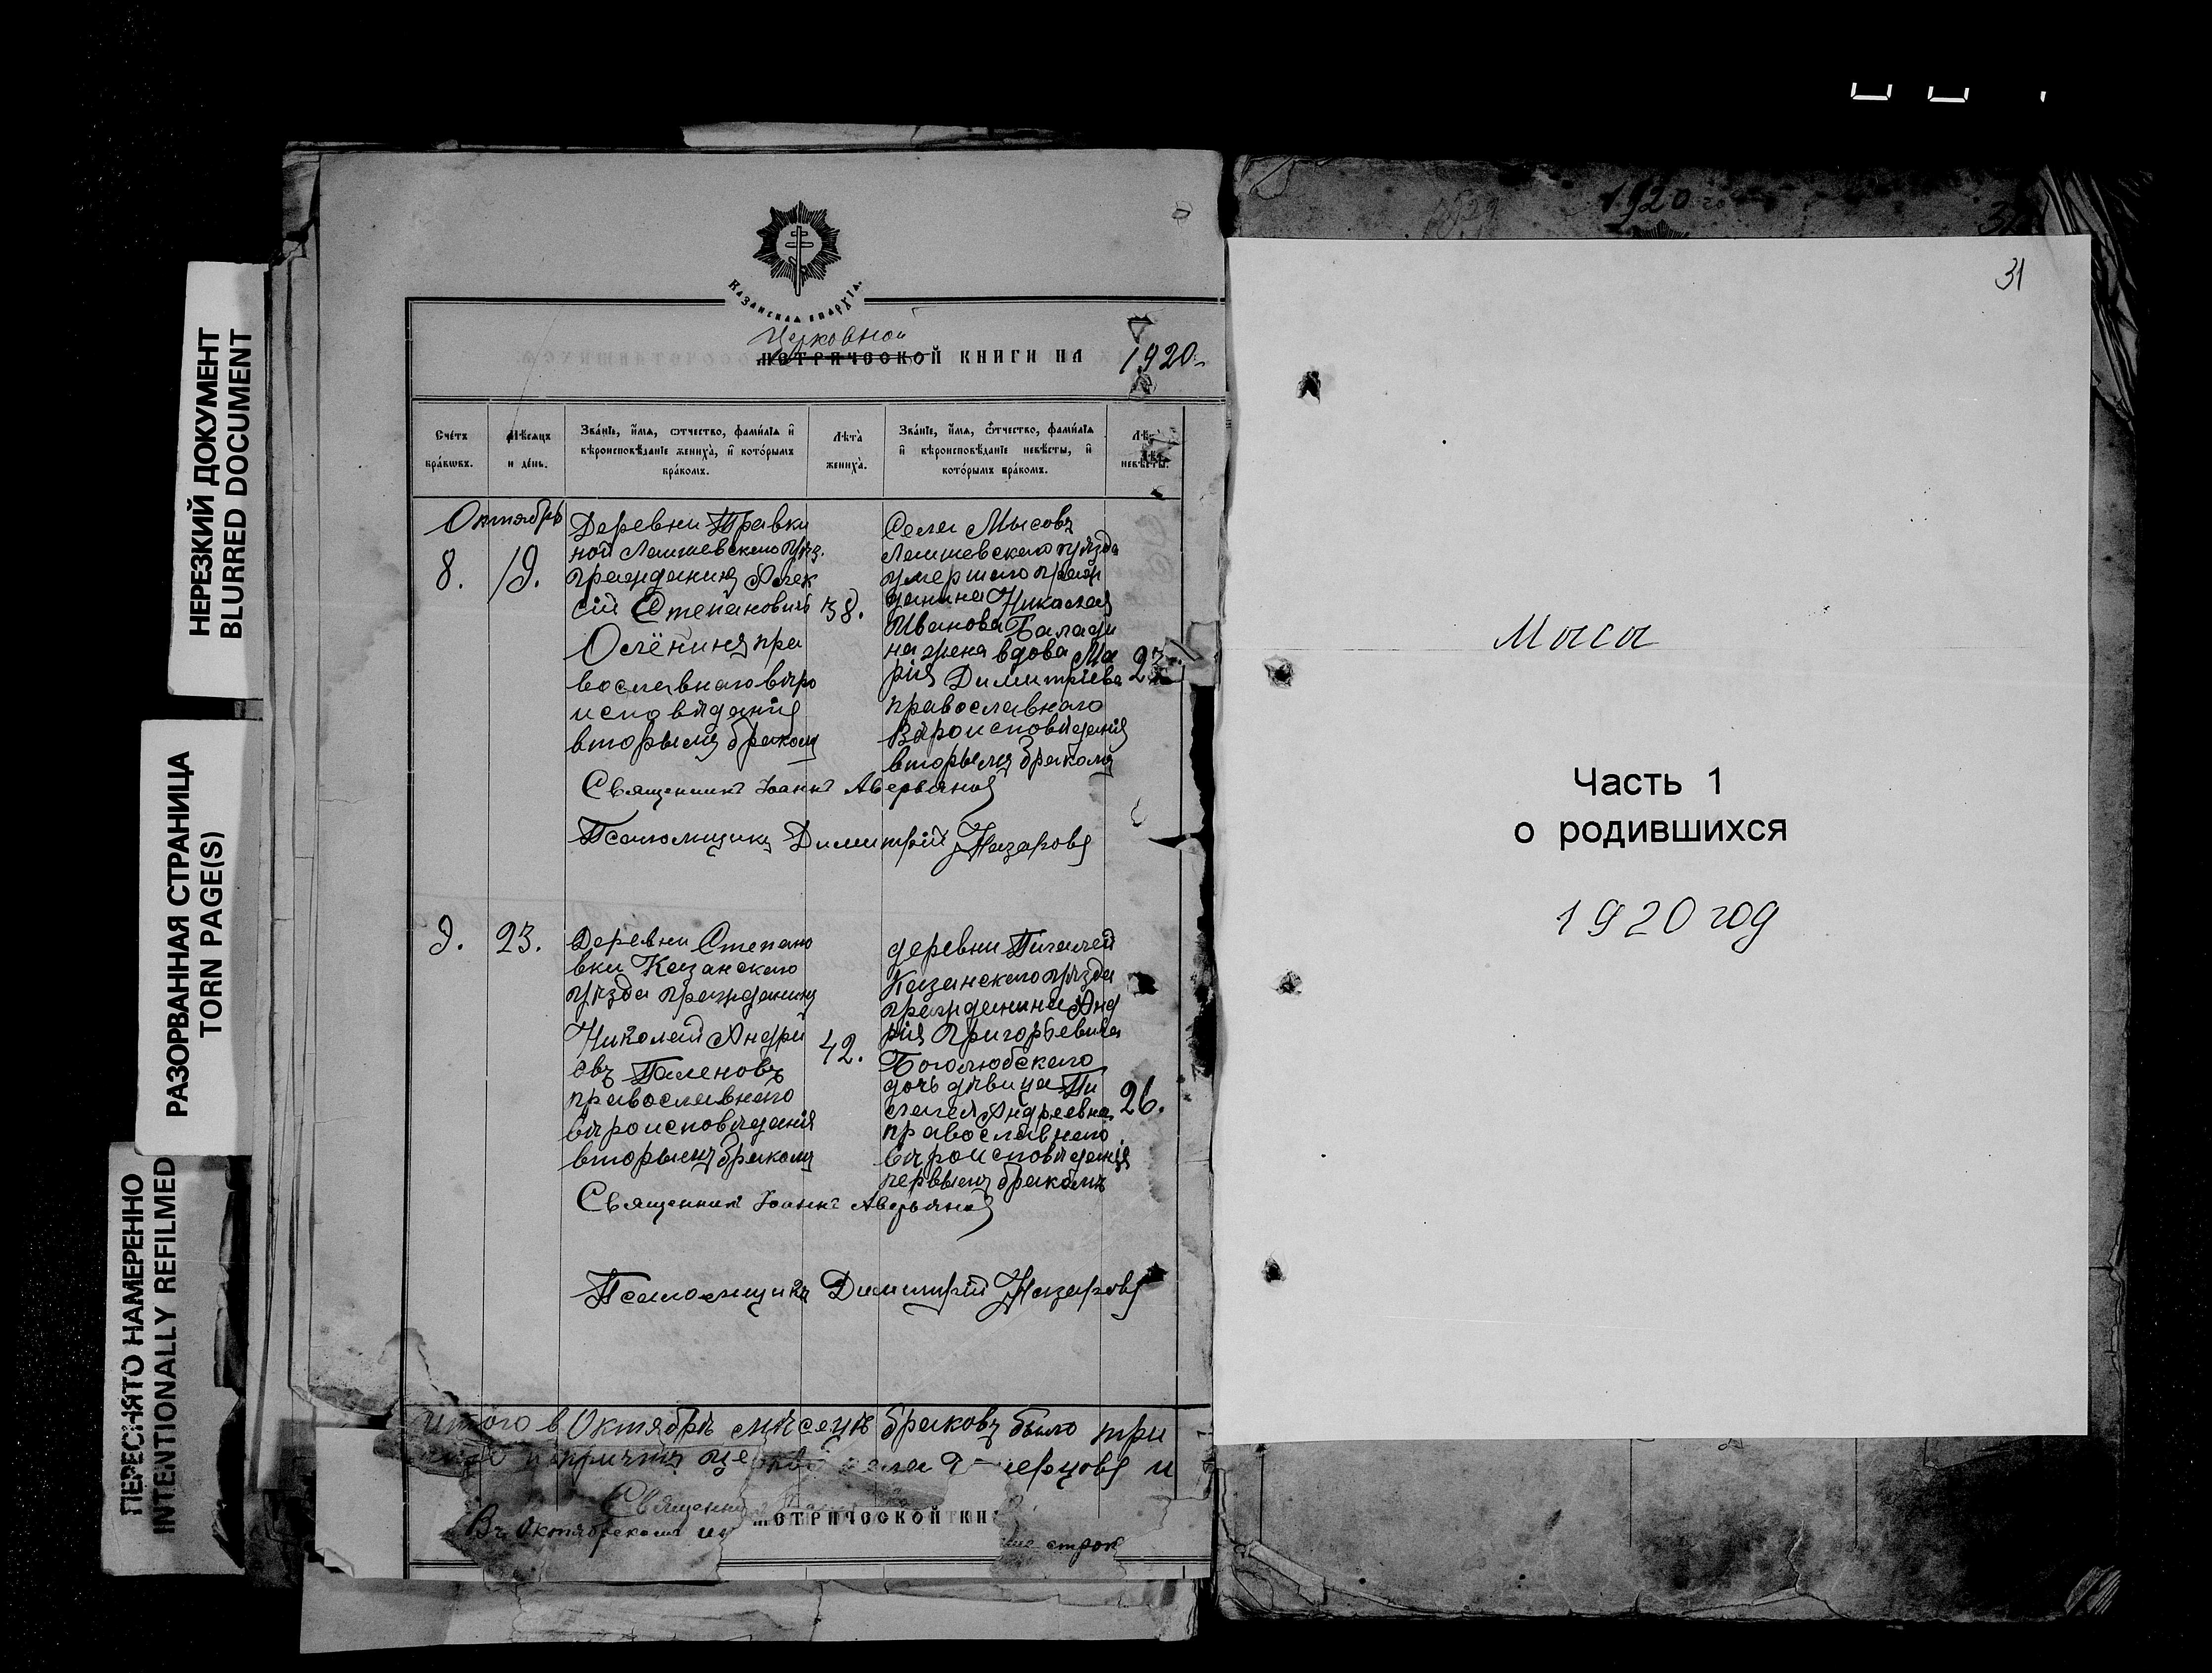 НЕРЕЗКИЙ ДОКУМЕНТ
BLURRED DOCUMENT
РАЗОРВАННАЯ СТРАНИЦА
TORN PAGE(S)
ПЕРЕСНЯТО НАМЕРЕННО
INTENTIONALLY REFILMED
КАЗАНСКАЯ ЕПАРХІЯ
Церковной
МЕТРИЧЕСКОЙ КНИГИ НА 1920
Счетъ браковъ.
Мѣсяцъ и день.
Званіе, имя, отчество, фамилія и вѣроисповѣданіе жениха, и которымъ бракомъ.
Лѣта жениха.
Званіе, имя, отчество, фамилія и вѣроисповѣданіе невѣсты, и которымъ бракомъ.
невѣсты.
Октябрь
8. 19.
Деревни Травки
ной Лаишевскаго уѣз.
гражданинъ Алек
сій Степановичъ
38.
пра
вославнаго вѣро
исповѣданія
вторымъ бракомъ
Села Мысовъ
Лаишевскаго уѣзда
умершаго граж
данина Николая
Иванова
на жена вдова Ма
рія Димитріева
23
православнаго
вѣроисповѣданія
вторымъ бракомъ
Священникъ Іоаннъ Аверьянов
Псаломщикъ Димитрій Назаровъ
9. 23.
Деревни Степано
вки Казанскаго
уѣзда гражданинъ
Николай Андре
евъ
42.
православнаго
вѣроисповѣданія
вторымъ бракомъ
деревни
Казанскаго уѣзда
гражданина Анд
рія Григорьевича
Боголюбскаго
дочь дѣвица Пе
лагея Андреевна
26.
православнаго
вѣроисповѣданія
первымъ бракомъ
Священникъ Іоаннъ Аверьянов
Псаломщикъ Димитрій Назаровъ
итого в Октябрѣ мѣсецѣ браковъ было три
села и
Священни
Въ Октябрском
МЕТРИЧЕСКОЙ КНИ
строк
1920 го
31
Мысы
Часть 1
о родившихся
1920 год